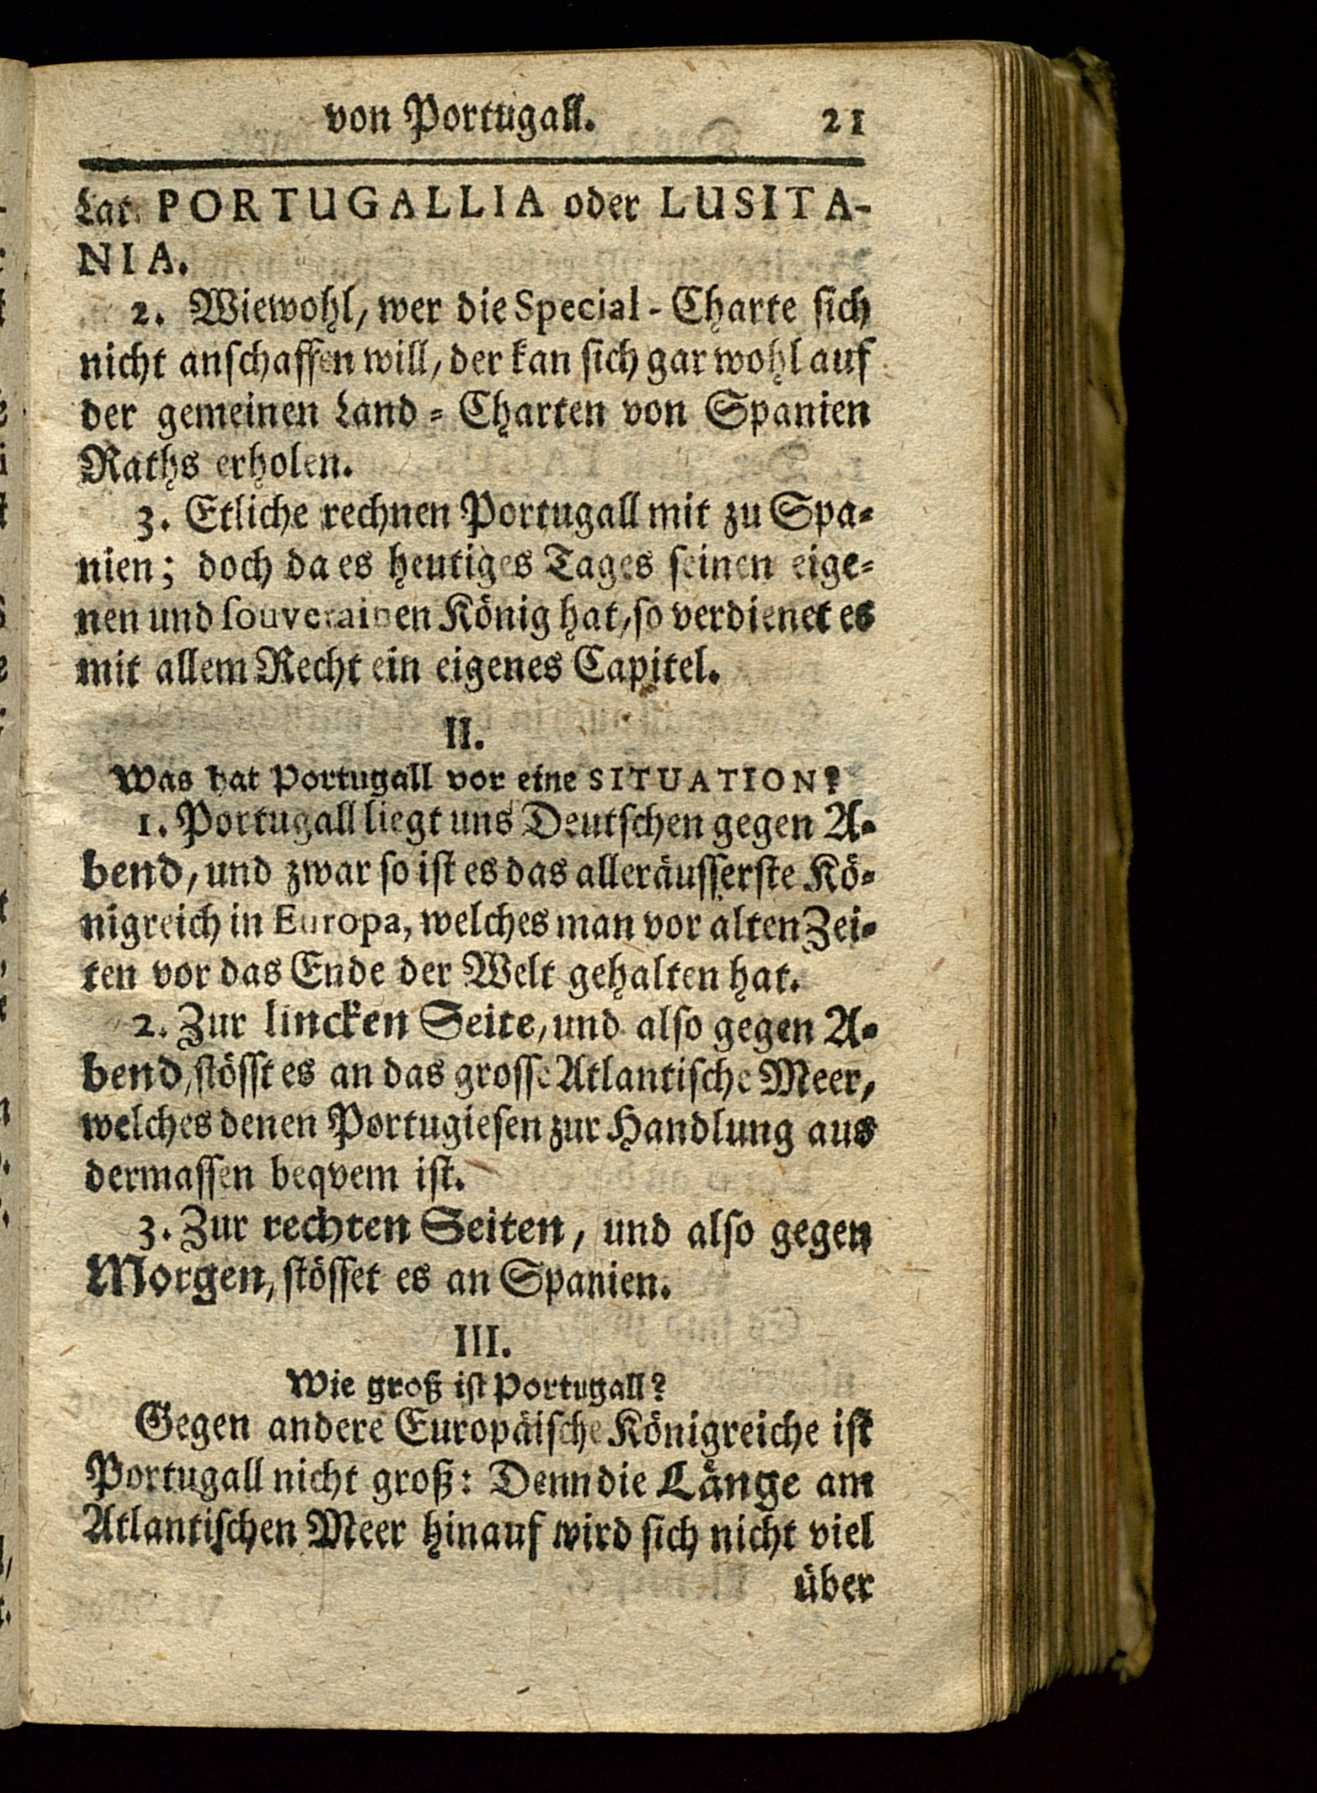 von Portugall. 21
Lat. PORTUGALLIA oder LUSITA-
NIA.
2. Wiewohl, wer die Special-Charte sich
nicht anschaffen will, der kan sich gar wohl auf
der gemeinen Land-Charten von Spanien
Raths erholen.
3. Etliche rechnen Portugall mit zu Spa-
nien; doch da es heutiges Tages seinen eige-
nen und souverainen König hat, so verdienet es
mit allem Recht ein eigenes Capitel.
II.
Was hat Portugall vor eine SITUATION?
1. Portugall liegt uns Deutschen gegen A-
bend, und zwar so ist es das alleräusserste Kö-
nigreich in Europa, welches man vor alten Zei-
ten vor das Ende der Welt gehalten hat.
2. Zur lincken Seite, und also gegen A-
bend, stösst es an das grosse Atlantische Meer,
welches denen Portugiesen zur Handlung aus
dermassen beqvem ist.
3. Zur rechten Seiten, und also gegen
Morgen, stösset es an Spanien.
III.
Wie groß ist Portugall?
Gegen andere Europäische Königreiche ist
Portugall nicht groß: Denn die Länge am
Atlantischen Meer hinauf wird sich nicht viel
über